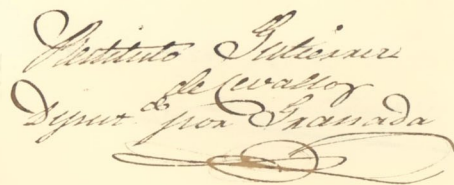 Restituto Gutierrez
de Cevallos
Diput.do por Granada